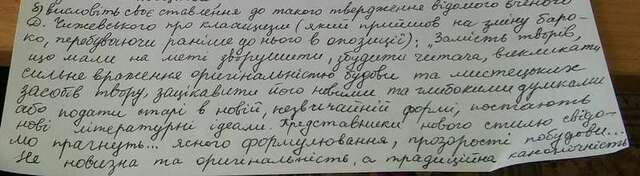 б) висловіть своє ставлення до такого твердження відомого вченого
Д. Чижевського про класицизм (який прийшов на зміну баро-
ко, перебуваючи раніше до нього в опозиції): „Замість творів,
що мали на меті зворушити, збудити читача, викликати
сильне враження оригінальністю будови та мистецьких
засобів твору, зацікавити його новими та глибокими думками
або подати старі в новій, незвичайній формі, постають
нові літературні ідеали. Представники нового стилю свідо-
мо прагнуть... ясного формулювання, прозорості побудови...
Не новизна та оригінальність, а традиційна канонічність